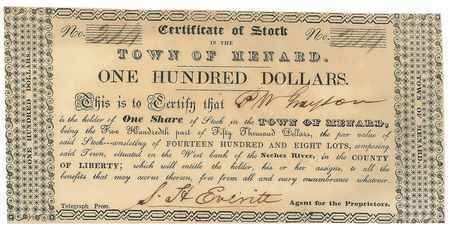 No. 214 Certificate of Stock No. 214
IN THE
TOWN OF MENARD.
ONE HUNDRED DOLLARS.
This is to Certify that P W Grayson
is the holder of One Share of Stock in the TOWN OF MENARD;
being the Five Hundredth part of Fifty Thousand Dollars, the par value of
said Stock—consisting of FOURTEEN HUNDRED AND EIGHT LOTS, composing
said Town, situated on the West bank of the Neches River, in the COUNTY
OF LIBERTY; which will entitle the holder, his or her assigns, to all the
benefits that may accrue thereon, free from all and every encumbrance whatever.
S. H. Everitt
Telegraph Press. Agent for the Proprietors.
ONE HUNDRED DOLLARS
TOWN OF